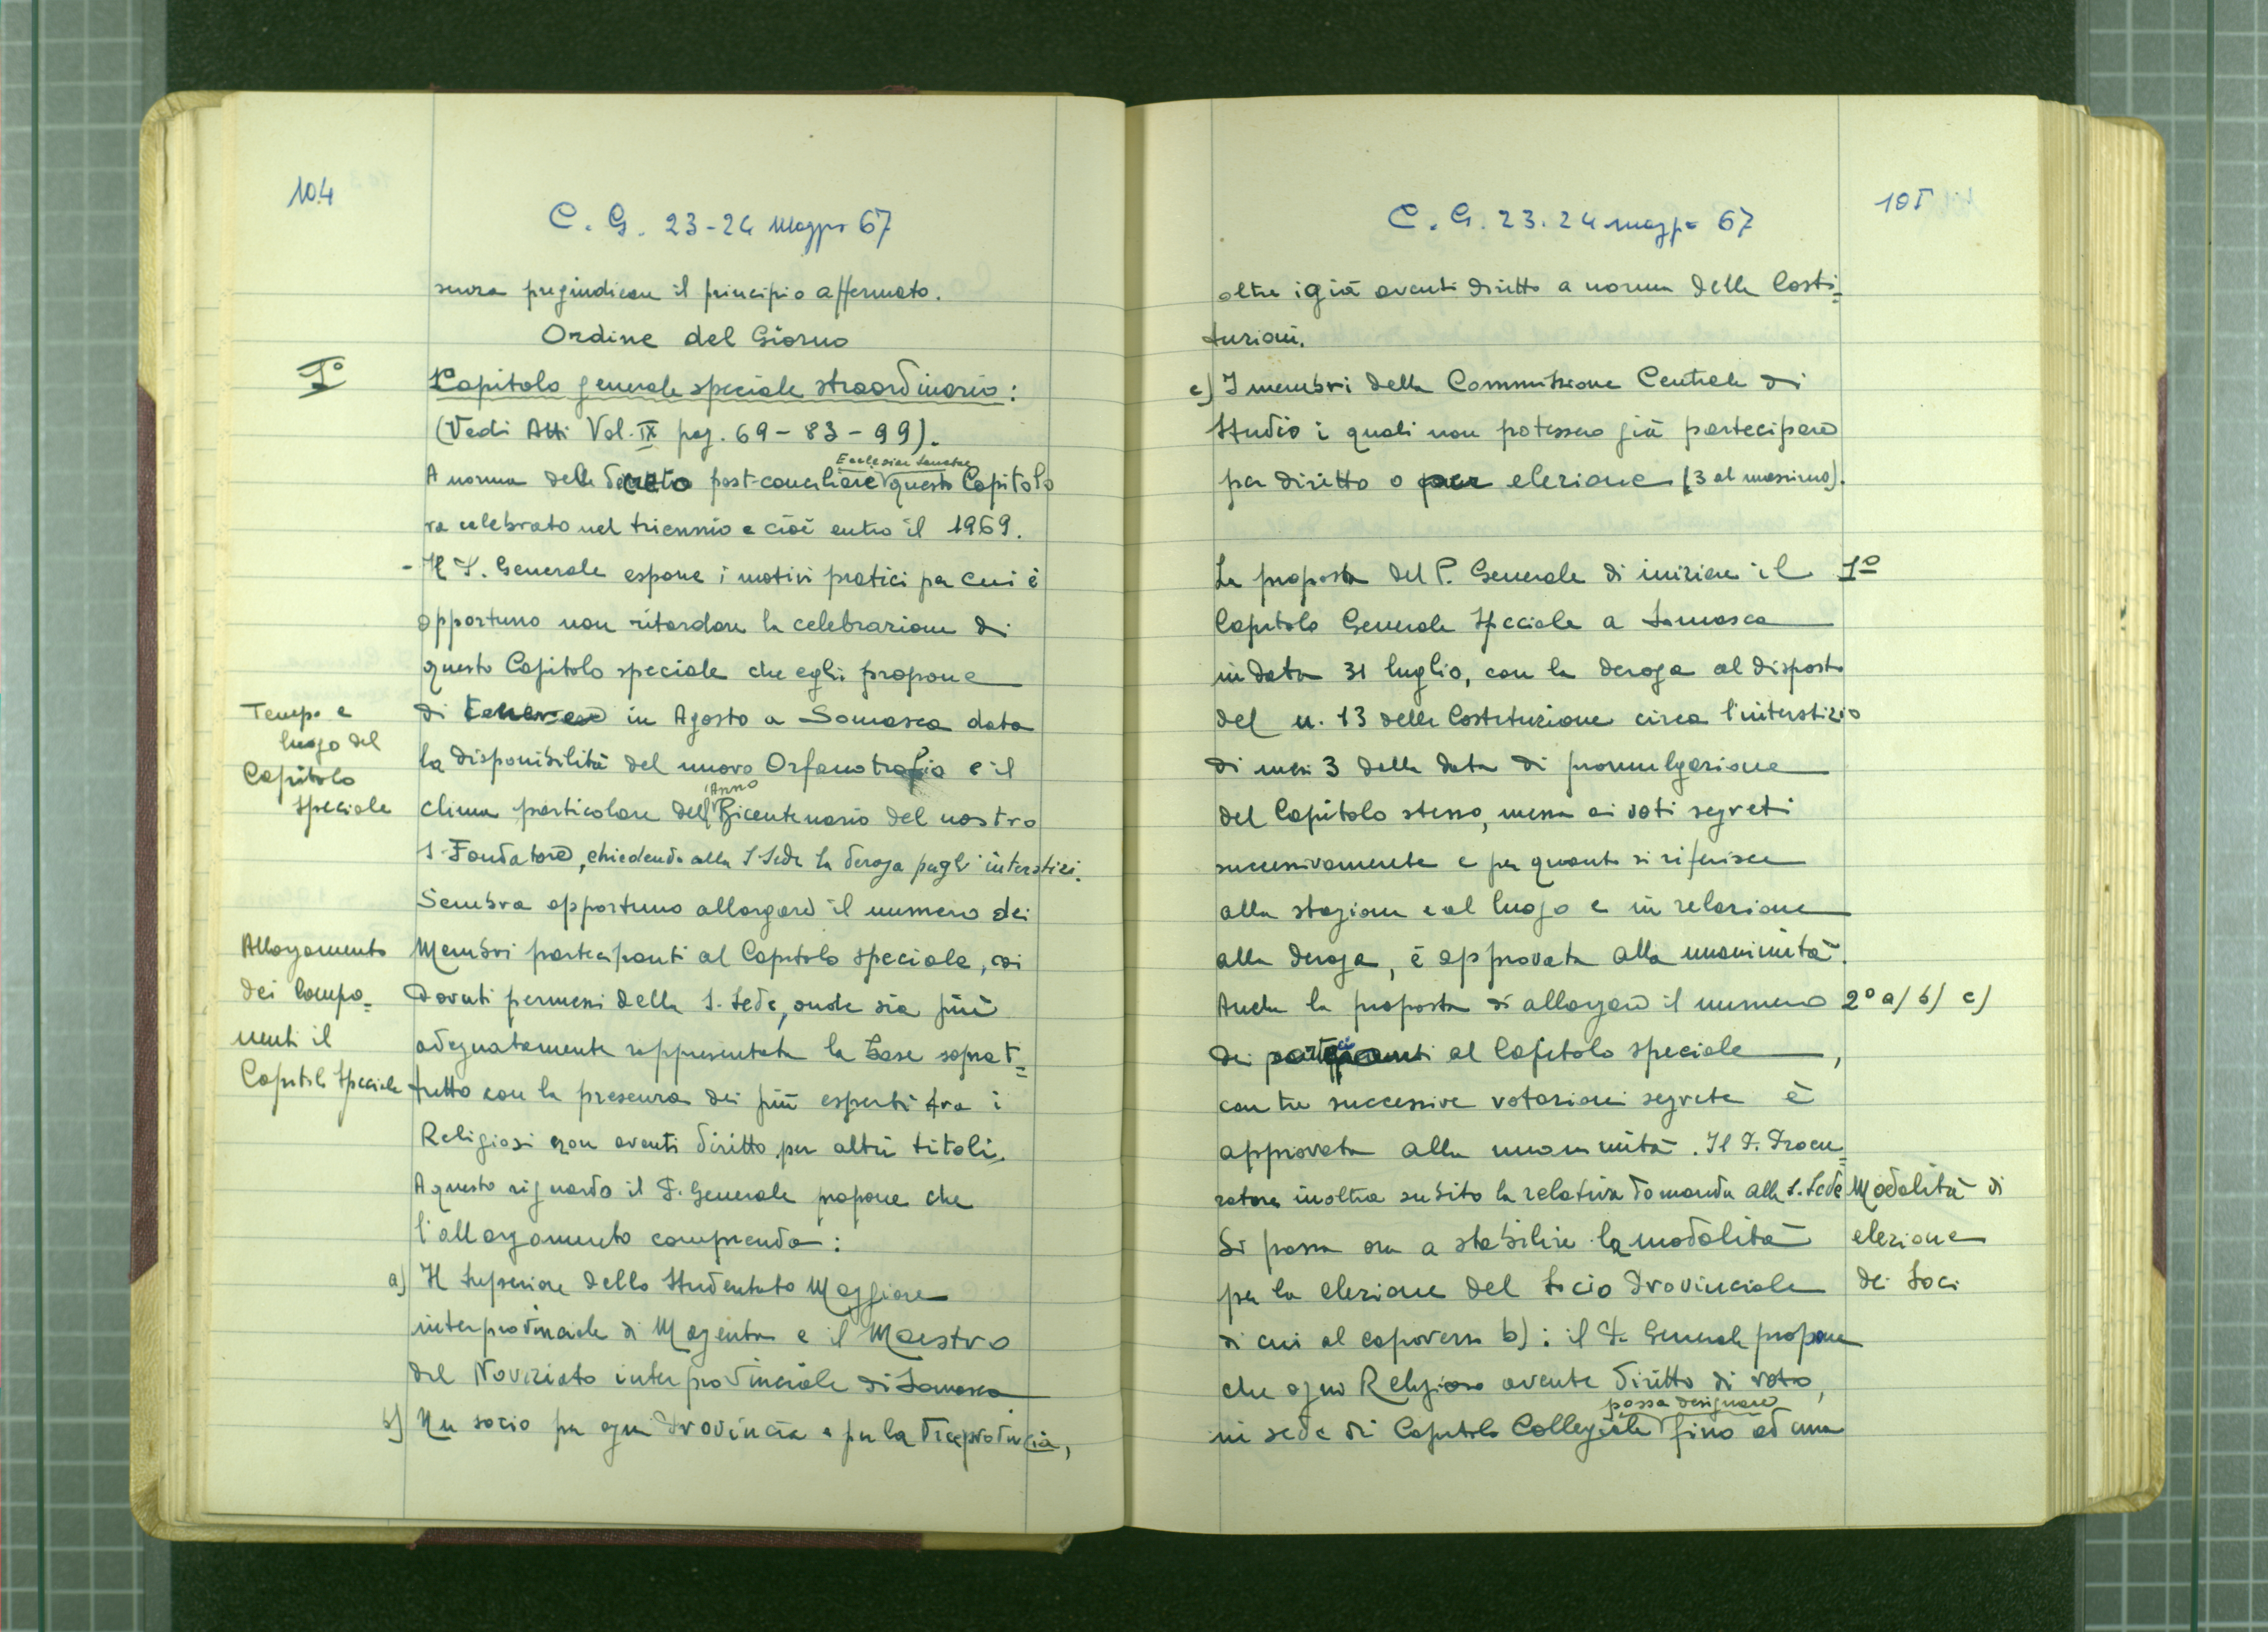 104
C. G. 23-24 Maggio 67
senza pregiudicare il principio affermato.
Ordine del Giorno
1º
Capitolo generale speciale straordinario:
(Vedi Atti Vol. IX pag. 69 - 83 - 99).
Ecclesiae Sanctae
A norma del decreto post-conciliare questo Capitolo
va celebrato nel triennio e cioè entro il 1969.
- Il P. Generale espone i motivi pratici per cui è
opportuno non ritardare la celebrazione di
questo Capitolo speciale che egli propone
Tempo e
luogo del
Capitolo
speciale
di tenere in Agosto a Somasca data
la disponibilità del nuovo Orfanotrofio e il
Anno
clima particolare dell' Bicentenario del nostro
S. Fondatore, chiedendo alla S. Sede la deroga pegli interstizi.
Sembra opportuno allargare il numero dei
Allargamento
dei Compo=
nenti il
Capitolo Speciale
Membri partecipanti al Capitolo speciale, coi
dovuti permessi della S. Sede, onde sia più
adeguatamente rappresentata la base soprat=
tutto con la presenza dei più esperti fra i
Religiosi non aventi diritto per altri titoli.
A questo riguardo il P. Generale propone che
l'allargamento comprenda:
a) Il Superiore dello Studentato Maggiore
interprovinciale di Magenta e il Maestro
del Noviziato interprovinciale di Somasca
b) Un socio per ogni Provincia e per la Viceprovincia,
105
C. G. 23.24 maggio 67
oltre i già aventi diritto a norma delle Costi=
tuzioni.
c) I membri della Commissione Centrale di
Studio i quali non potessero già partecipare
per diritto o per elezione (3 al massimo).
La proposta del P. Generale di iniziare il
1º
Capitolo Generale Speciale a Somasca
in data 31 luglio, con la deroga al disposto
del n. 13 delle Costituzione circa l'interstizio
di mesi 3 della data di promulgazione
del Capitolo stesso, messa ai voti segreti
successivamente e per quanto si riferisce
alla stagione e al luogo e in relazione
alla deroga, è approvata alla unanimità.
Anche la proposta di allargare il numero
2º a) b) c)
dei partecipanti al Capitolo speciale,
con tre successive votazioni segrete è
approvata alla unanimità. Il P. Procu=
ratore inoltra subito la relativa domanda alla S. Sede
Modalità di
elezione
dei Soci
Si passa ora a stabilire la modalità
per la elezione del Socio Provinciale
di cui al capoverso b): il P. Generale propone
che ogni Religioso avente diritto di voto,
possa designare
in sede di Capitolo Collegiale fino ad una